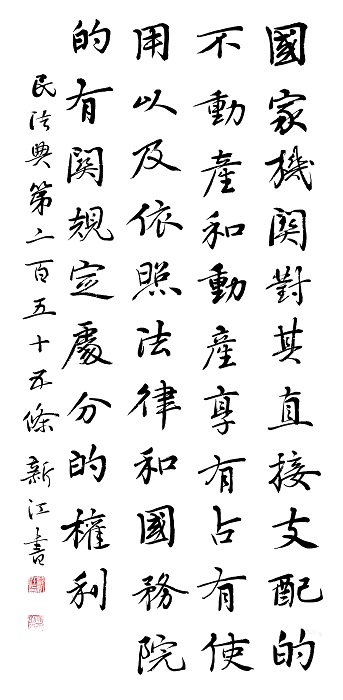 國家機関對其直接支配的
不動產和動產享有占有使
用以及依照法律和國務院
的有関規定處分的權利
民法典第二百五十五條 新江書